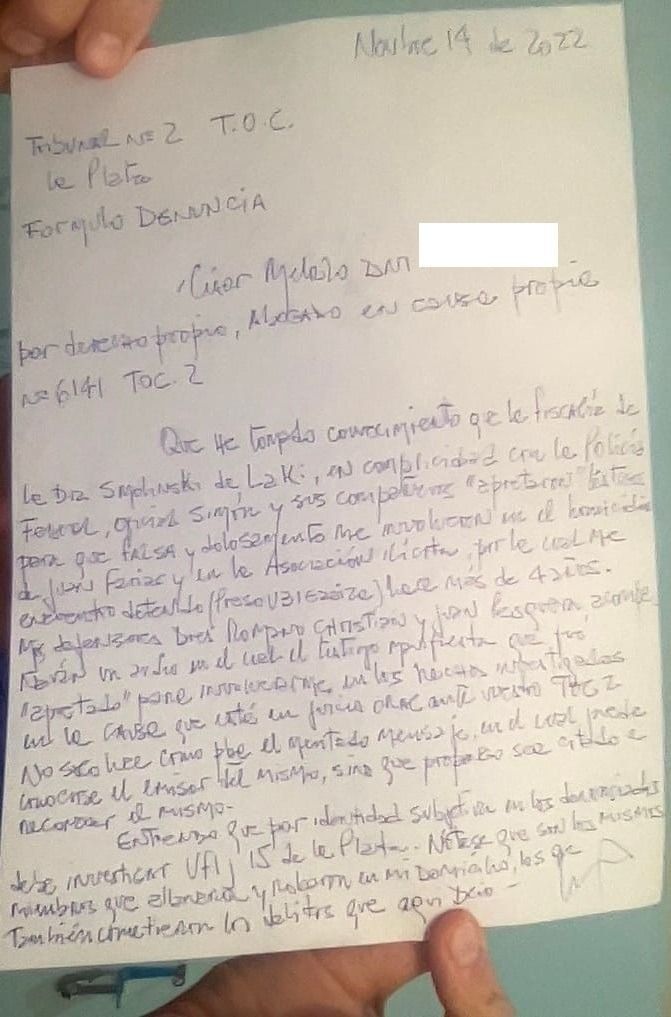 Novbre 14 de 2022
Tribunal Nº 2 T.O.C.
La Plata
Formulo DENUNCIA
César Melazo DNI
por derecho propio, Abogado en causa propia
Nº 6141 TOC. 2
Que He tomado conocimiento que la fiscalía de
la Dra Smolinski de Laki, en complicidad con la Policía
Federal, oficial Simón y sus compañeros "apretaron"
para que FALSA y dolosamente me involucren en el homicidio
de Juan Farias y en la Asociación ilícita, por la cual me
encuentro detenido (Preso U31Ezeiza) hace más de 4 años.
Mis defensores Dres Romano Christian y Juan
un audio en el cual el testigo manifiesta que fué
"apretado" para involucrarme en los hechos investigados
en la causa que está en juicio oral ante vuestro TOC 2
No solo hace como pba el mentado mensaje, en el cual puede
conocerse el emisor del mismo, sino que propongo sea citado a
reconocer el mismo-
Entiendo que por identidad subjetiva en los denunciados
debe investigar UFIJ 15 de La Plata. Nótese que son los mismos
miembros que allanaron y robaron en mi Domicilio, los que
También cometieron los delitos que aquí